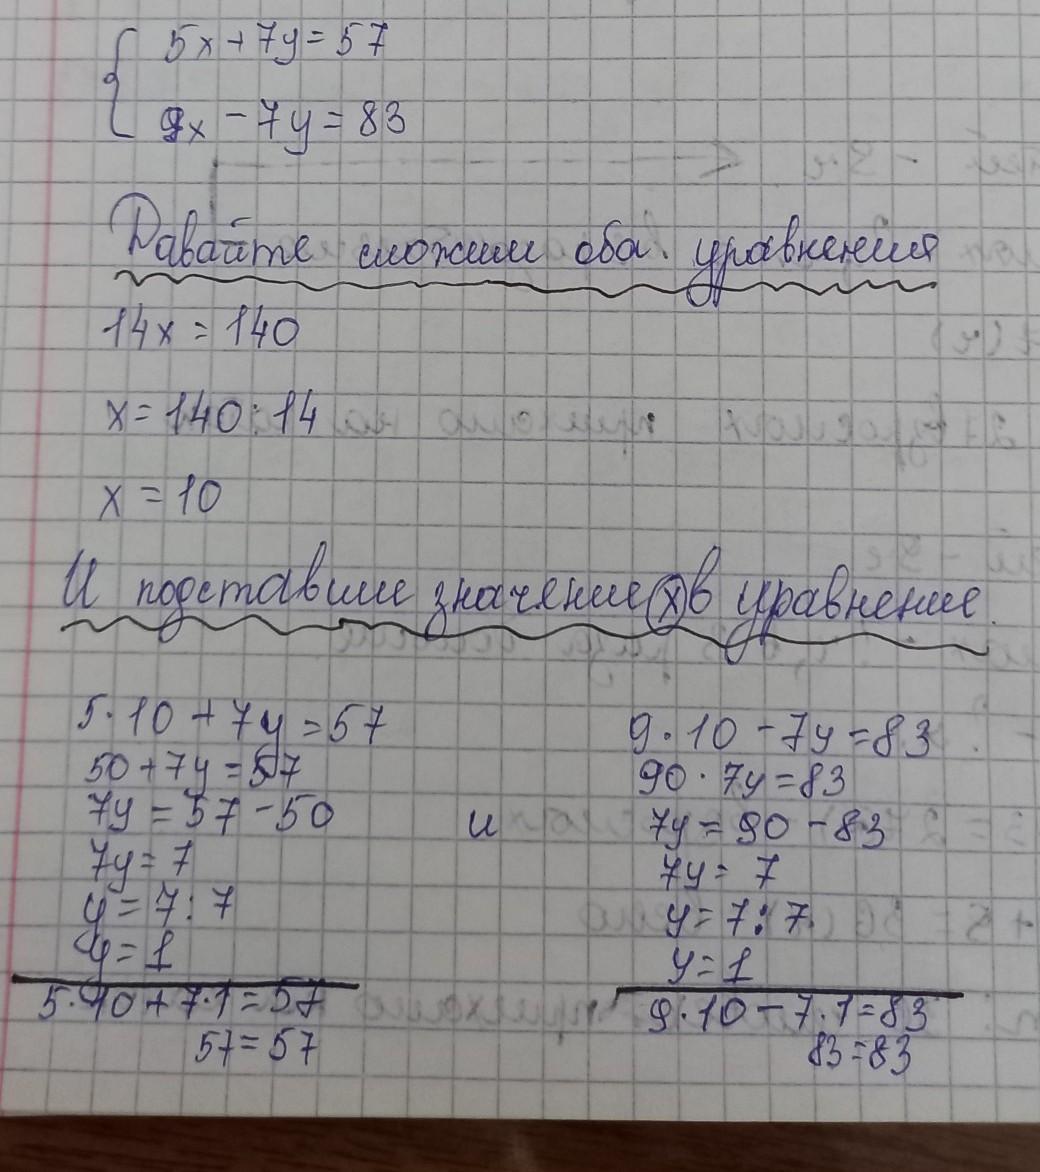 5x+7y=57
9x-7y=83
Давайте сложим оба уравнения
14x=140
x=140:14
x=10
И подставим значение x в уравнение.
5·10+7y=57
50+7y=57
7y=57-50
7y=7
y=7:7
y=1
5·10+7·1=57
57=57
и
9·10-7y=83
90·7y=83
7y=90-83
7y=7
y=7:7
y=1
9·10-7·1=83
83=83